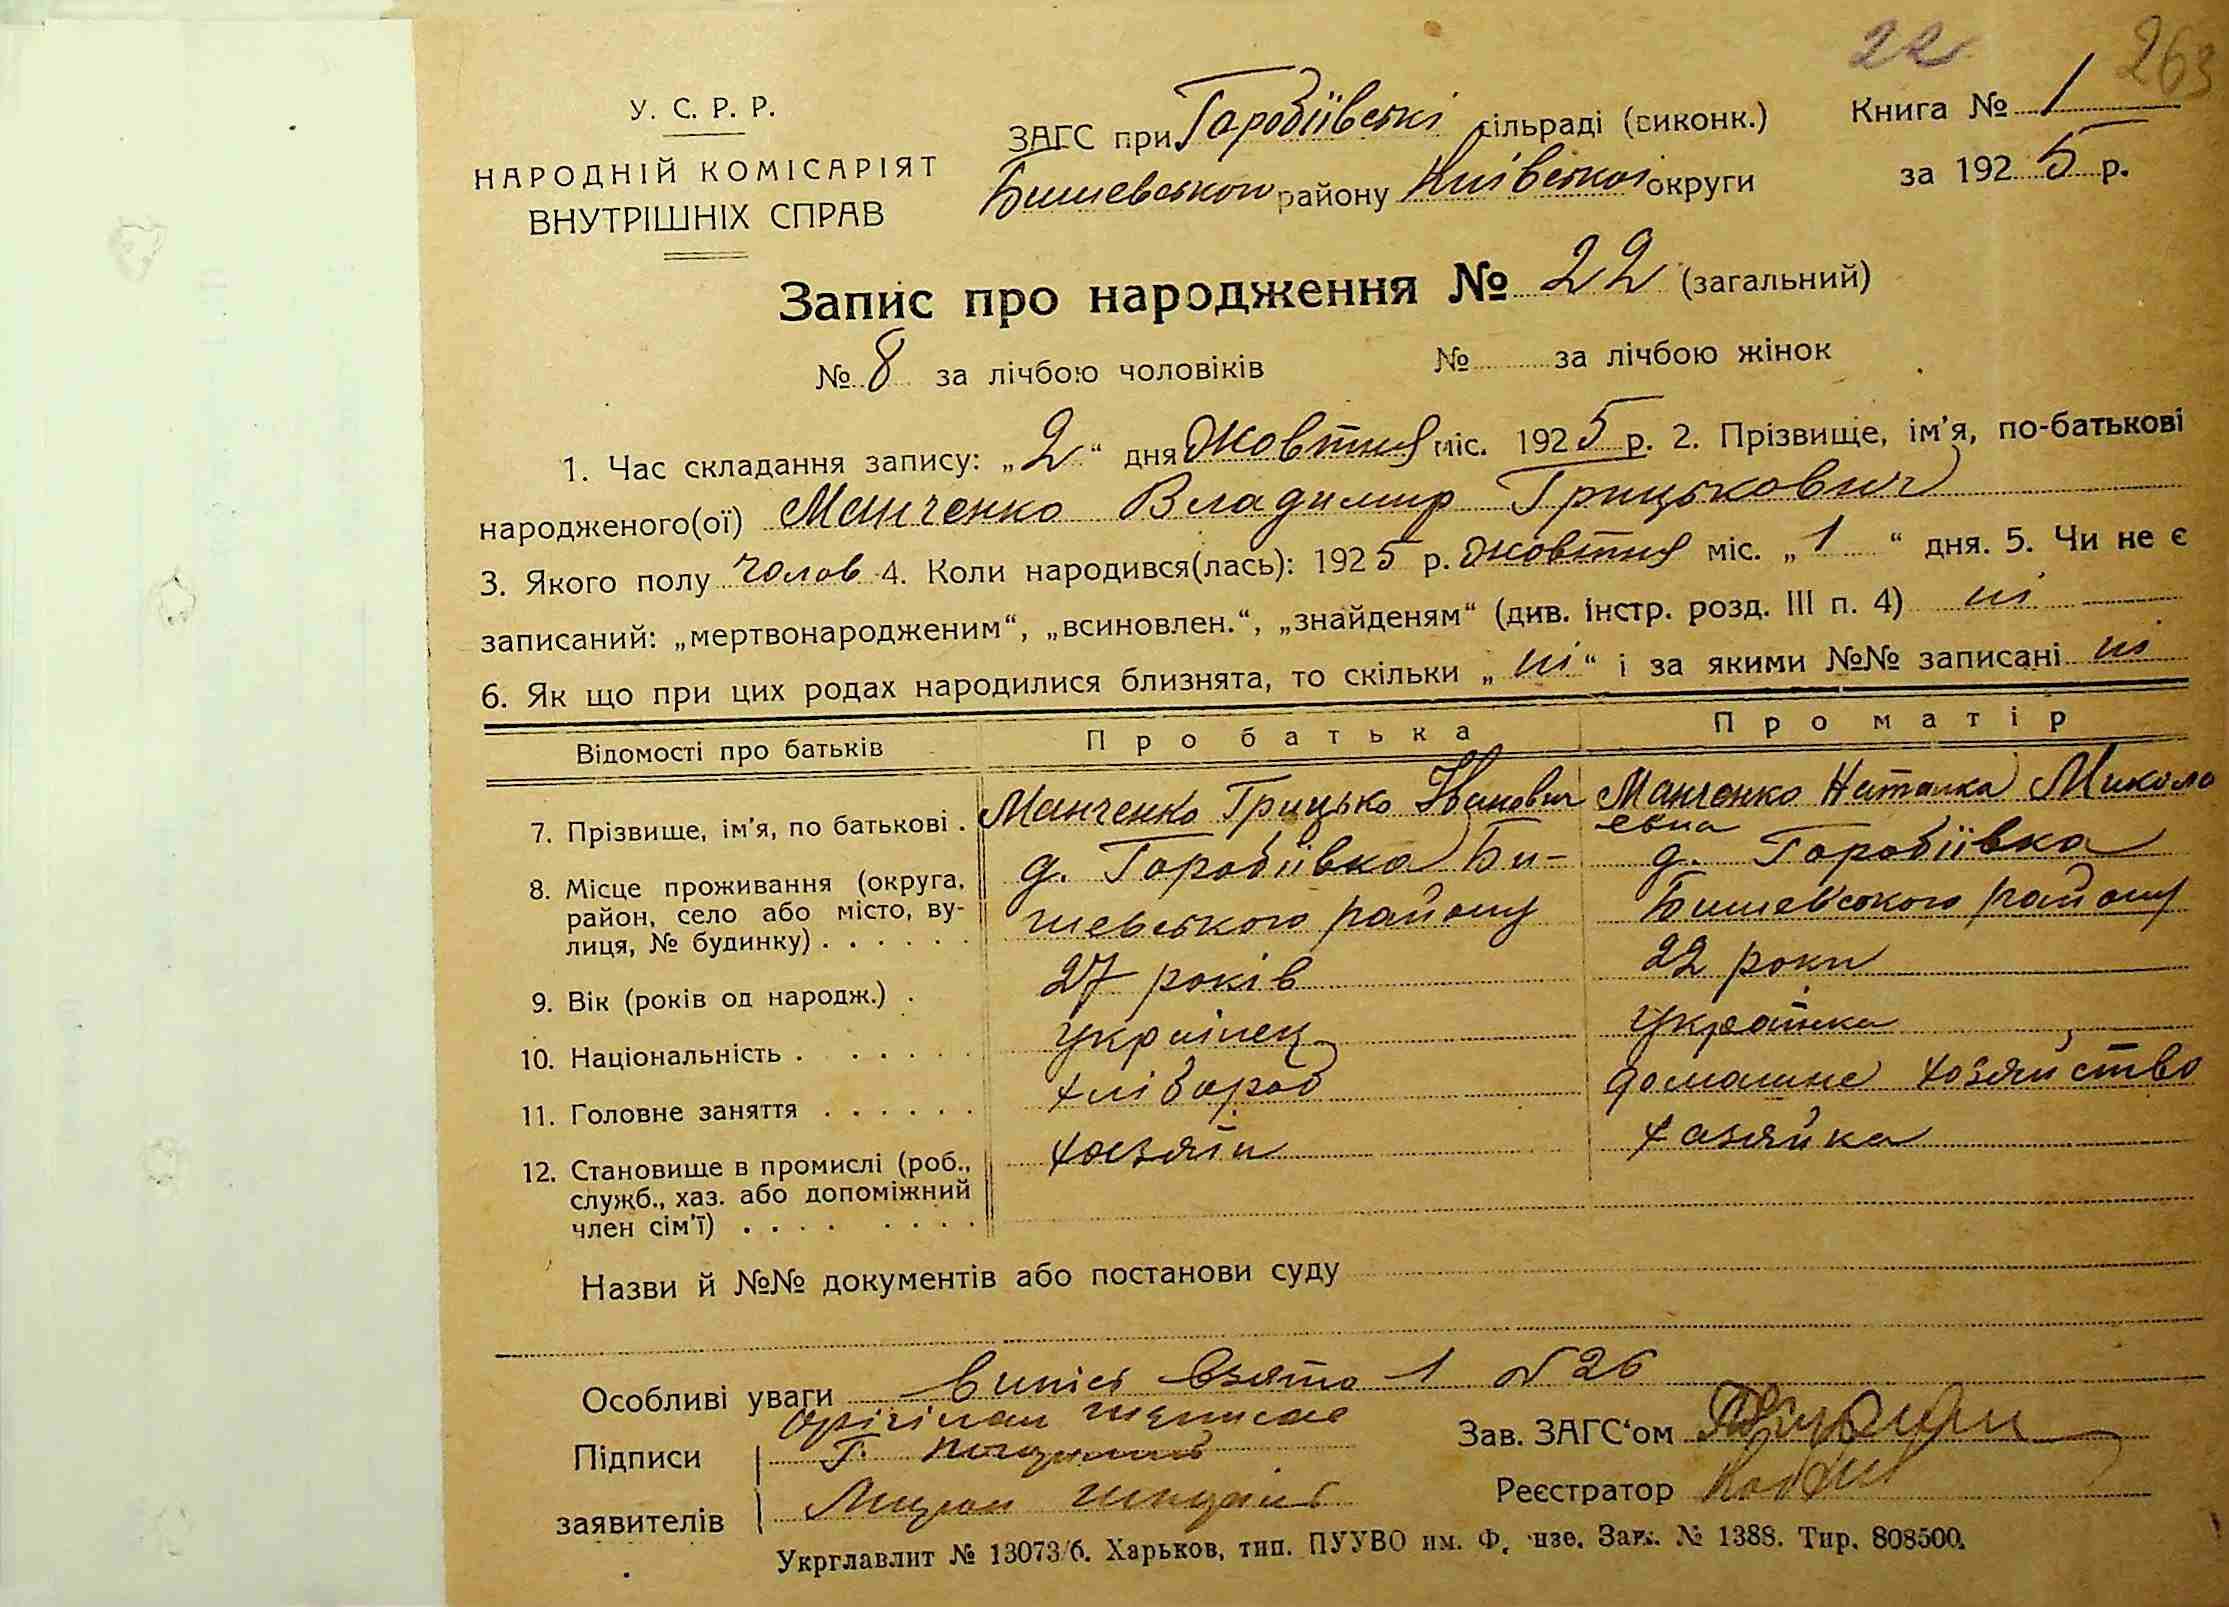 22 263
У. С. Р. Р.
НАРОДНІЙ КОМІСАРІЯТ
ВНУТРІШНІХ СПРАВ
ЗАГС при Горобіївські сільраді (виконк.)
Бишевського району Київської округи
Книга № 1
за 1925 р.
Запис про народження № 22 (загальний)
№ 8 за лічбою чоловіків № за лічбою жінок
1. Час складання запису: „2“ дня Жовтня міс. 1925 р. 2. Прізвище, ім'я, по-батькові
народженого(ої) Манченко Владимир Грицькович
3. Якого полу чолов 4. Коли народився(лась): 1925 р. жовтня міс. „1“ дня. 5. Чи не є
записаний: „мертвонародженим“, „всиновлен.“, „знайденям“ (див. інстр. розд. III п. 4) ні
6. Як що при цих родах народилися близнята, то скільки „ні“ і за якими №№ записані ні
Відомості про батьків Про батька Про матір
7. Прізвище, ім'я, по батькові . Манченко Грицько Іванович Манченко Наталка Миколо
евна
8. Місце проживання (округа, д. Горобіївка Би- д. Горобіївка
район, село або місто, ву- шевського району Бишевського району
лиця, № будинку) . . . . . .
9. Вік (років од народж.) . 27 років 22 роки
10. Національність . . . . . . українець українка
11. Головне заняття . . . . . . хлібороб домашне хозяйство
12. Становище в промислі (роб., хазяїн хазяйка
служб., хаз. або допоміжний
член сім'ї) . . . . . . . .
Назви й №№ документів або постанови суду
Особливі уваги випісь взято 1 №26
Підписи
заявителів
Зав. ЗАГС'ом
Реєстратор
Укрглавлит № 13073/б. Харьков, тип. ПУУВО им. Ф. нзе. Зак. № 1388. Тир. 808500.